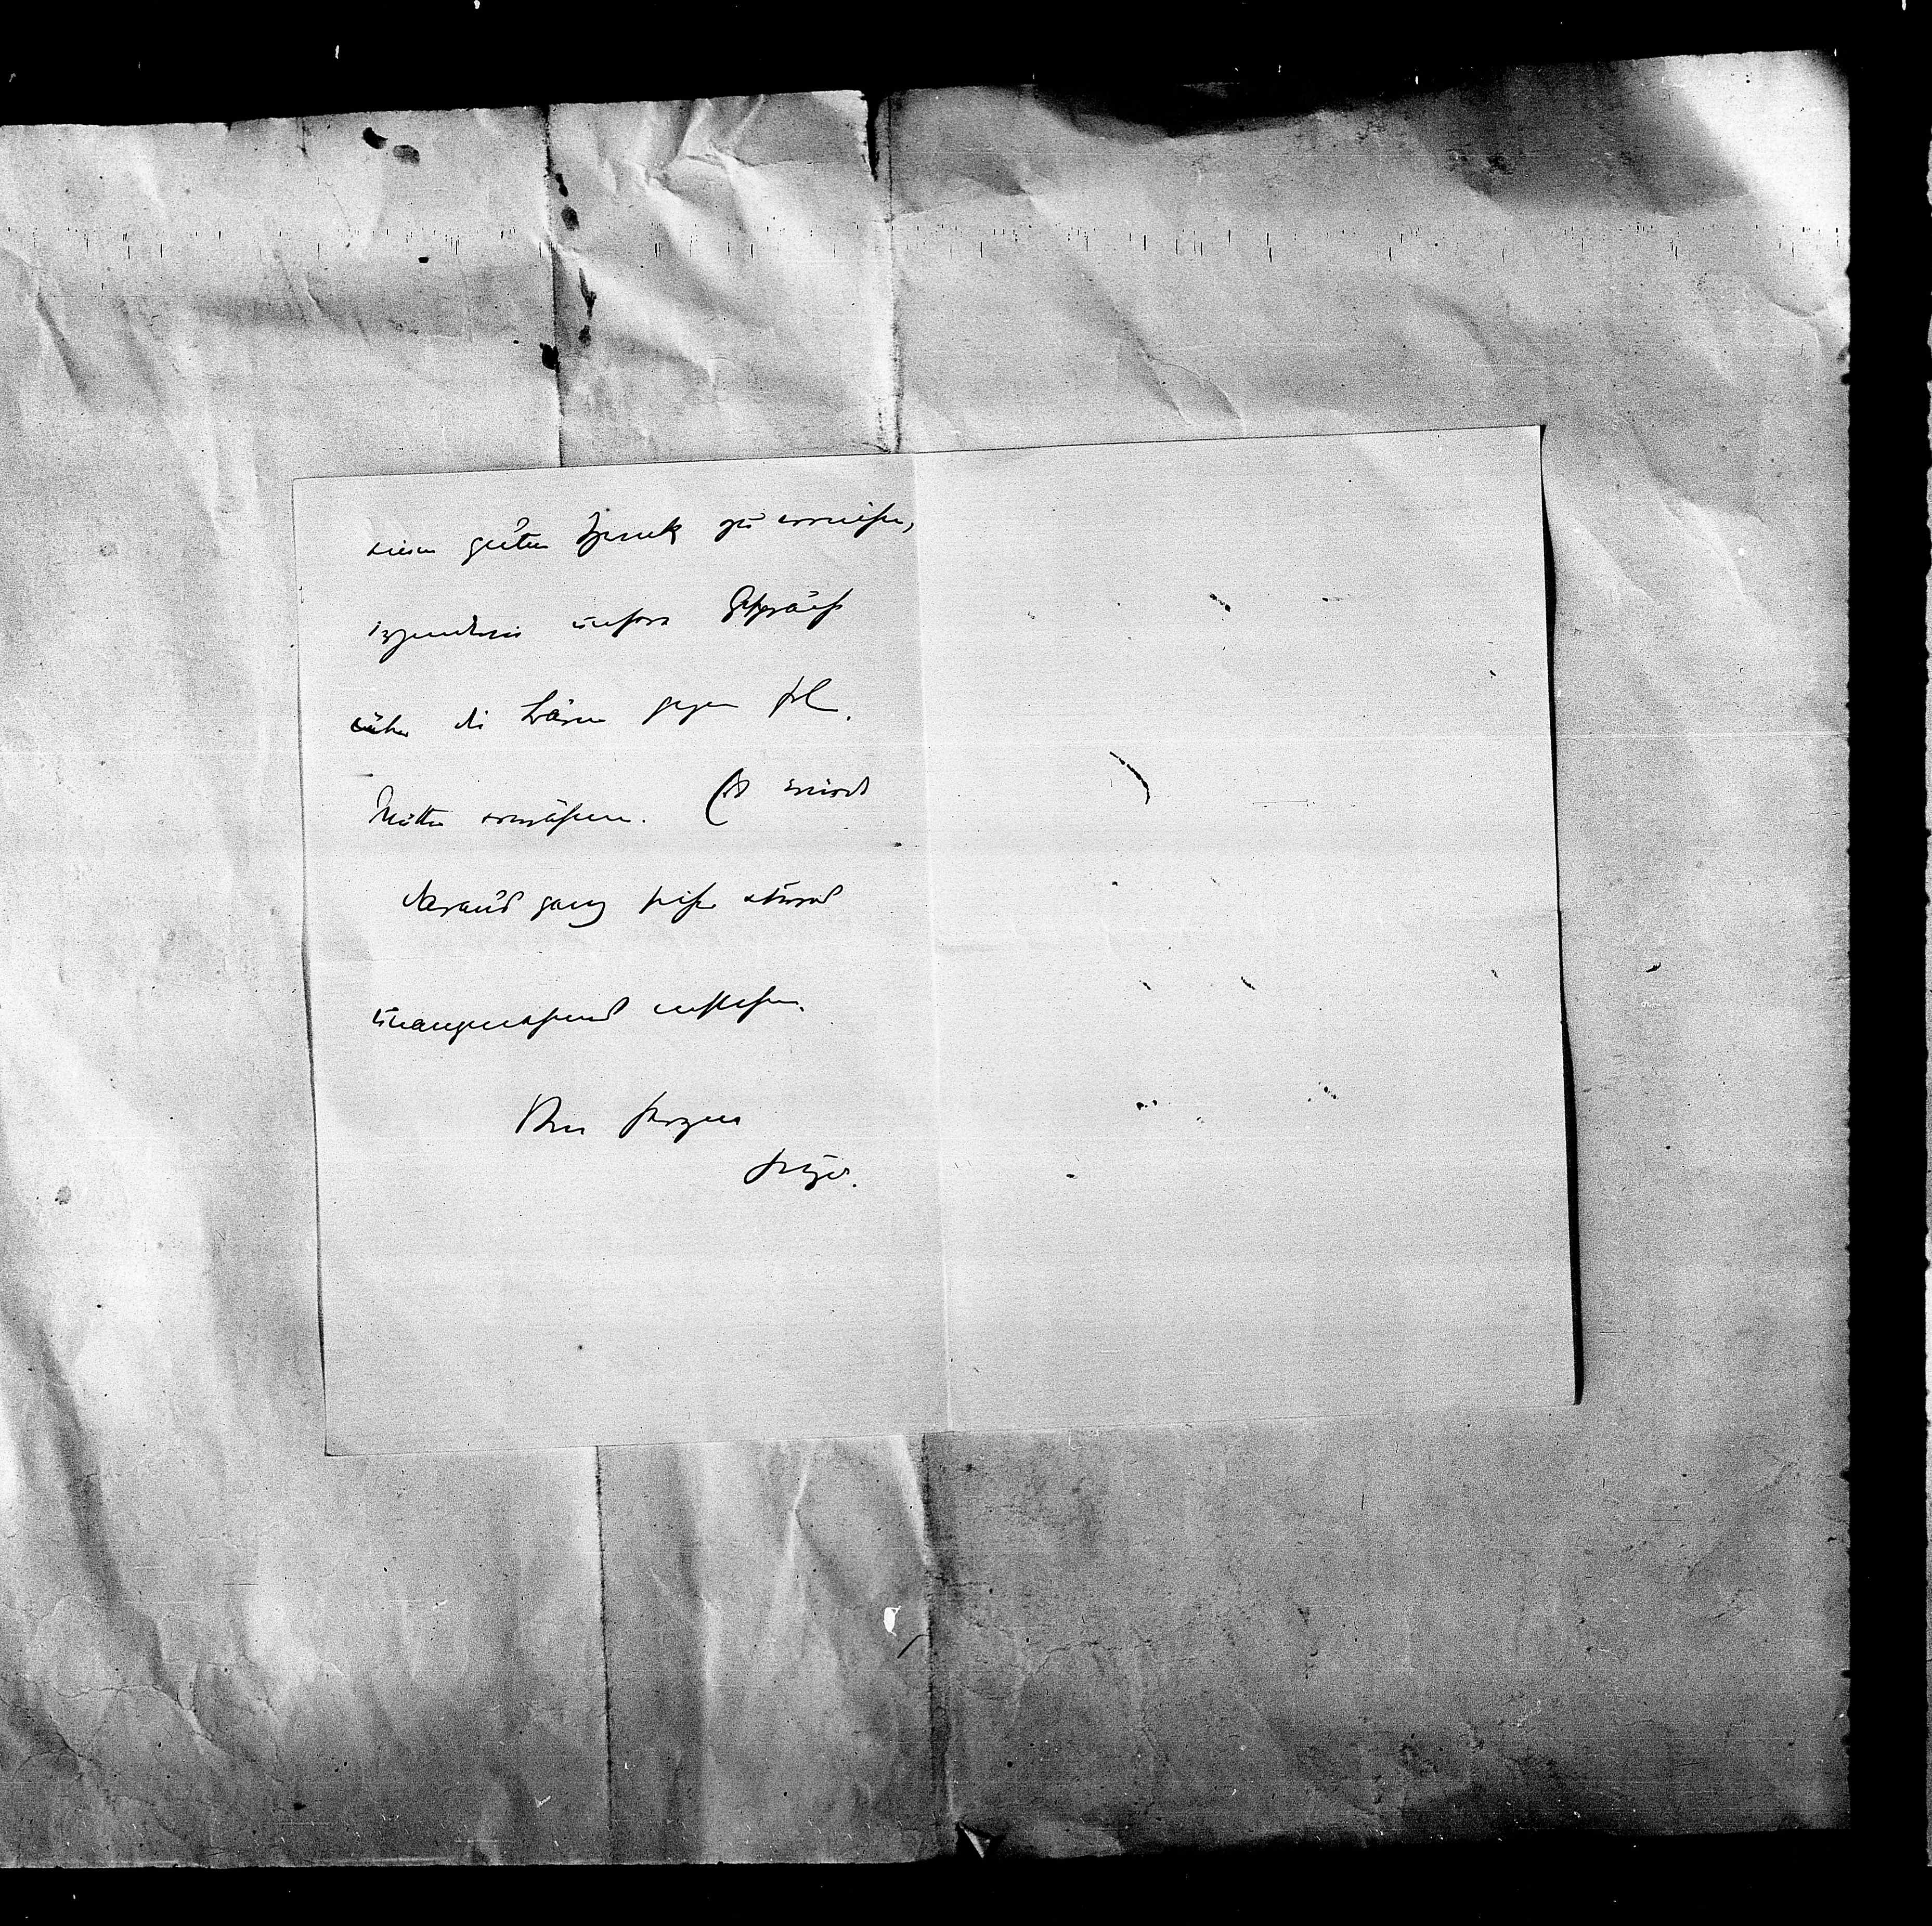 einen guten Zweck zu erreichen,
irgendwie unsere Gespräche
über die gegen Frl.
Mutter erwähnen. Es würde
daraus ganz sicher etwas
unangenehmes entstehen.
Von Herzen